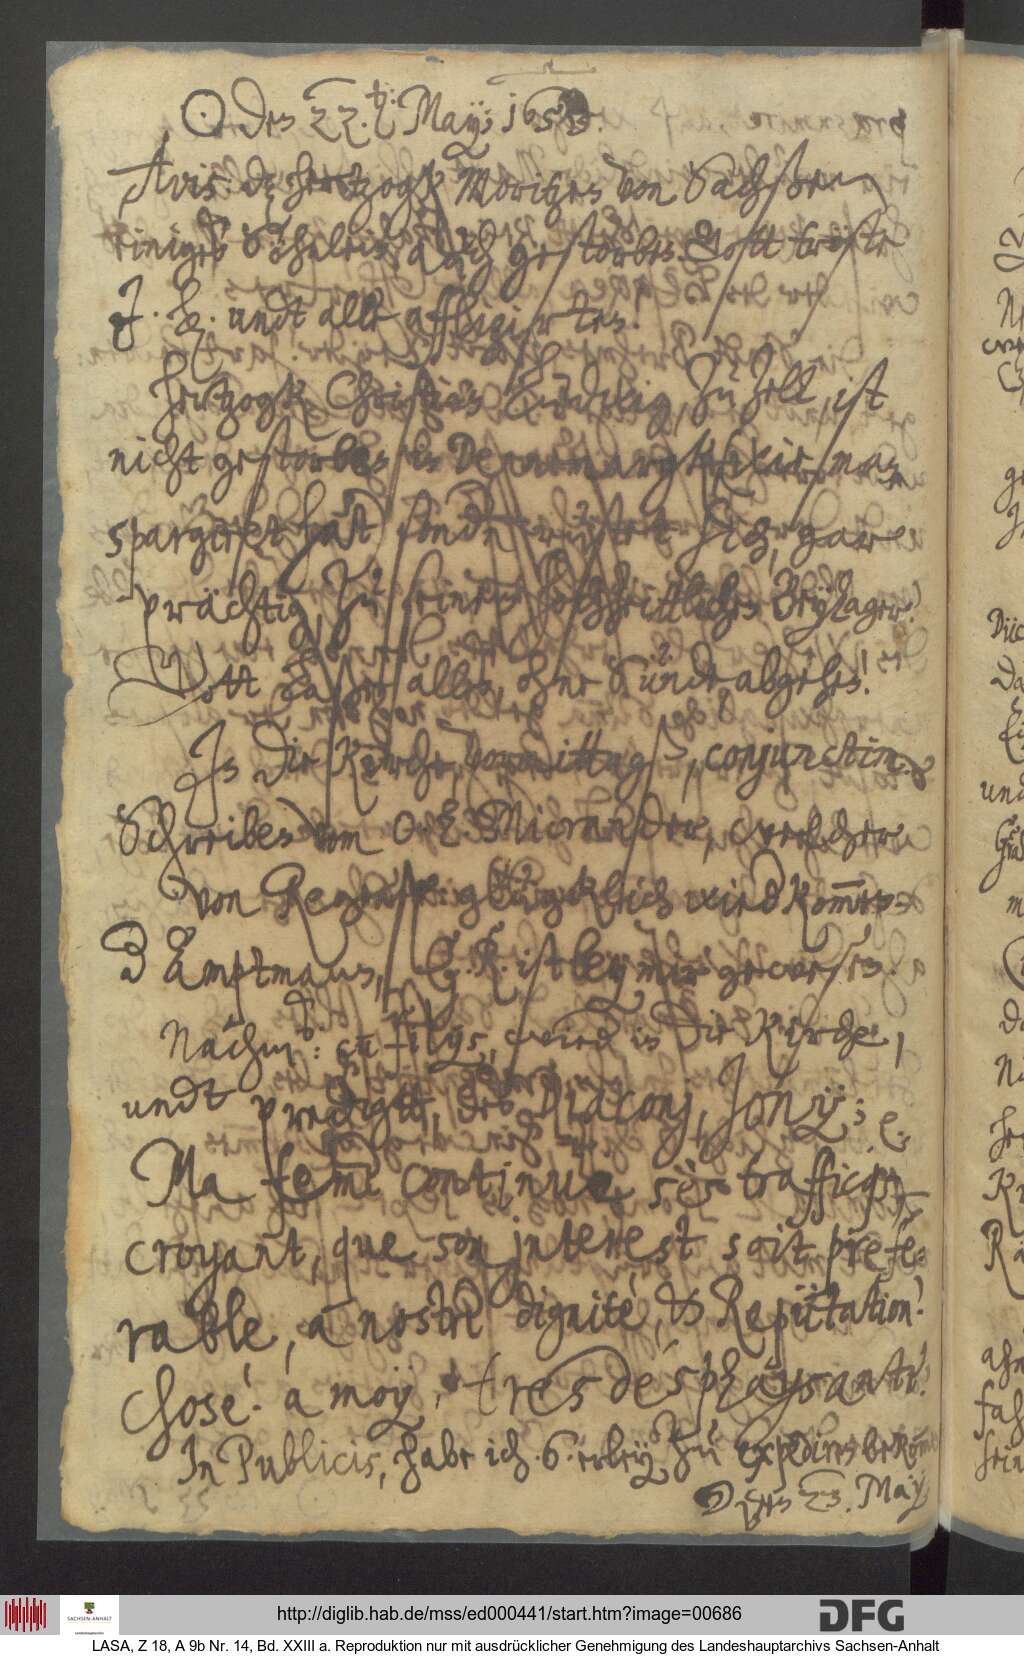 ☉ den 22.ten: May; 1653.
Avis: dz hertzogk Moritzes von Sachßen
einiges Söhnlein, auch gestorben. Gott tröste
J. h. undt alle affligirten.
Hertzogk Christian Ludwig, zu Zell, ist
nicht gestorben in Dennemargk, wie man
spargiret hat, sondern rüstet sich, gar
prächtig, zu seinem Beylager.
Gott laße alles, ohne Sünde, abgehen!
In die Kirche, vormittags, conjunctim.
Schreiben vom
von Regenspurg glücklich wiedkommen
Der Amptmann, G. R. ist bey mir gewesen.
Nachm: cum filijs, wied in die Kirche,
undt predigtt, des Diaconj, Jonij; e.
Ma femme continue ses traffiques
croyant, que son interest soit prefe-
rable, a nostre dignitè, & Reputation!
chose! a moy, tres desplaysante!
In Publicis, habe ich 6.erley zu expediren bekommen
Den 23. May
http://diglib.hab.de/mss/ed000441/start.htm?image=00686
DFG
SACHSEN-ANHALT
LASA, Z 18, A 9b Nr. 14, Bd. XXIII a. Reproduktion nur mit ausdrücklicher Genehmigung des Landeshauptarchivs Sachsen-Anhalt